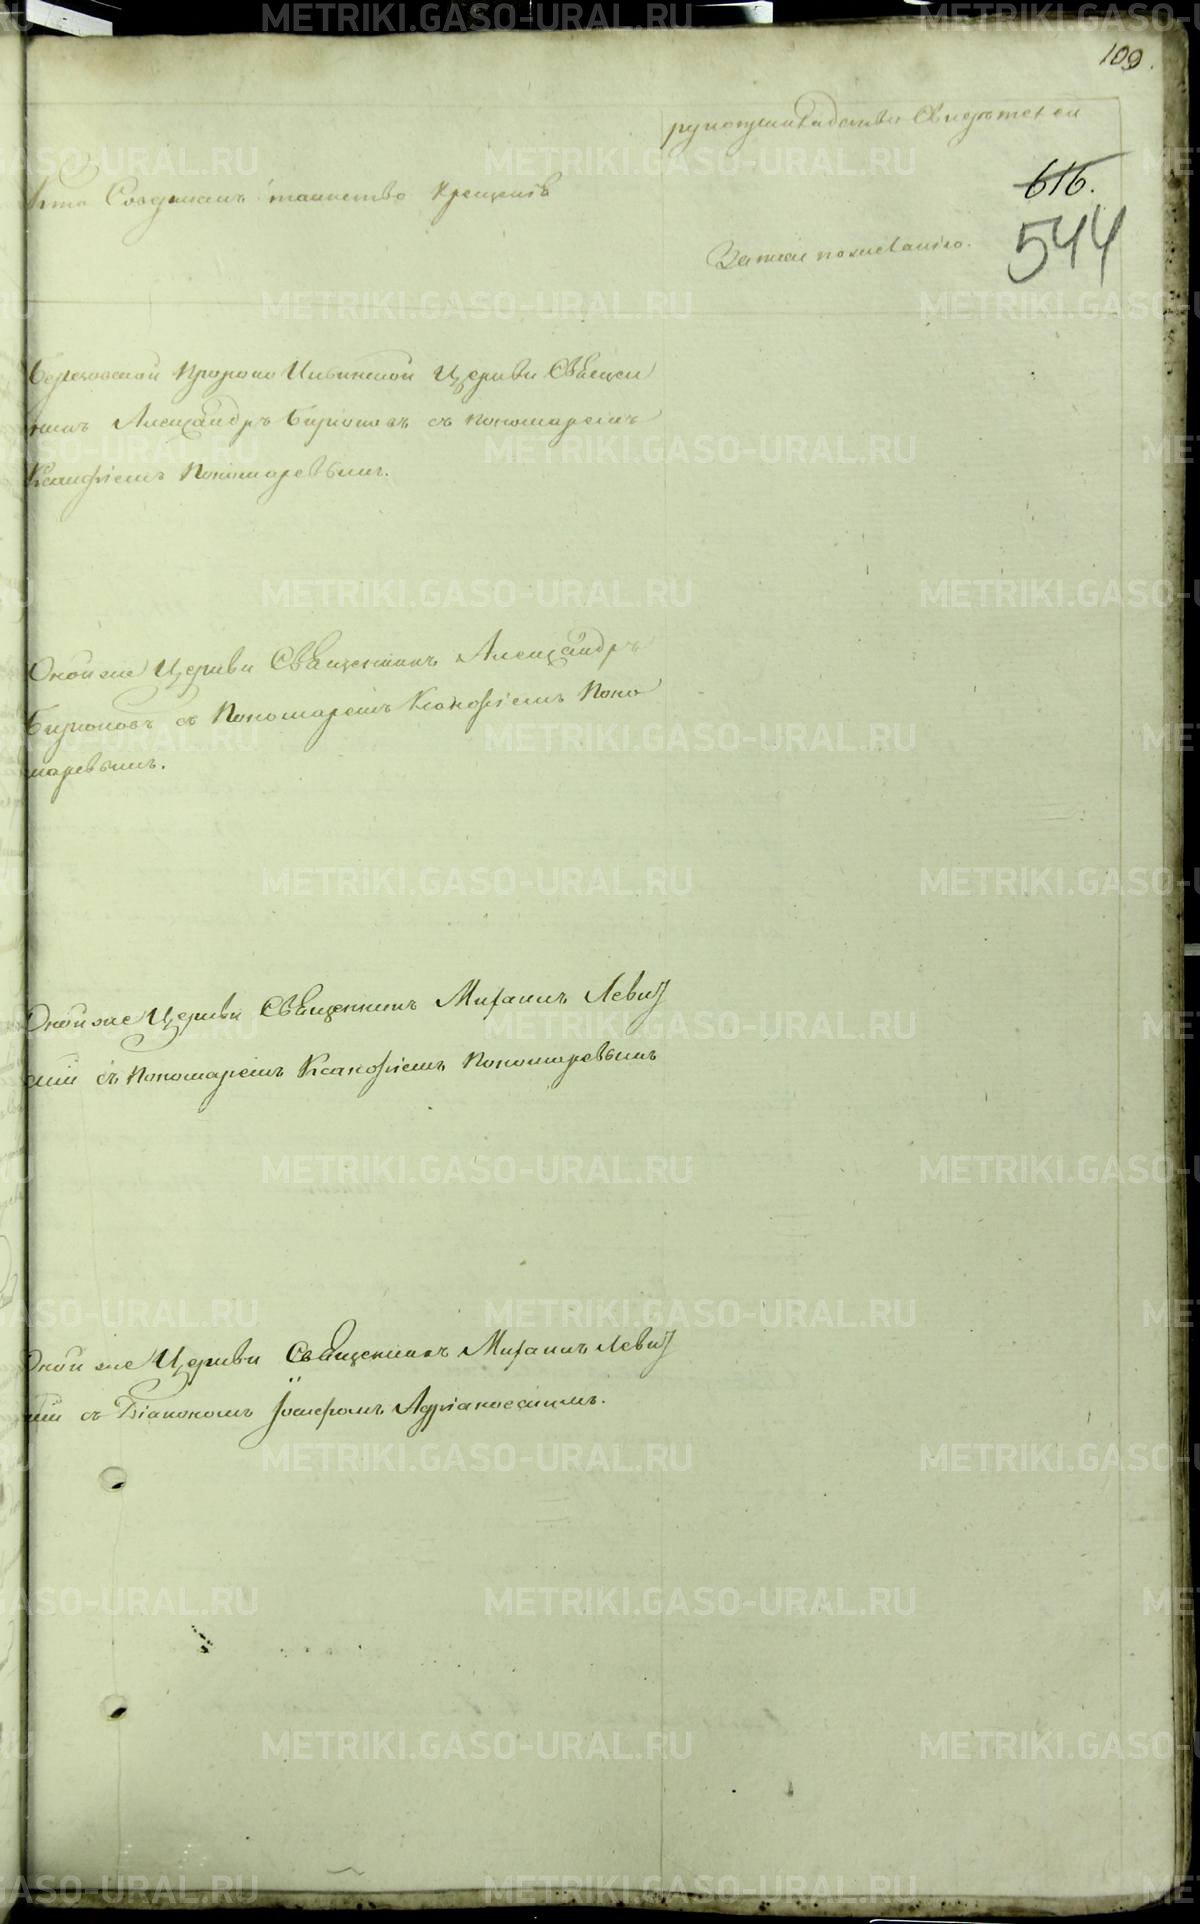 109.
рукоприкладство Свидѣтелей
Кто Совершалъ таинство Крещенія
616.
544
По желанію.
Березовской Пророко Ильинской Церкви Священ
никъ Александръ Бирюковъ съ пономаремъ
Ксанфіемъ Пономаревымъ.
Оной же Церкви Священникъ Александръ
Бирюковъ съ Пономаремъ Ксанфіемъ Поно
маревымъ.
Оной же Церкви Священникъ Михаилъ Левиц
кій съ Пономаремъ Ксанфіемъ Пономаревымъ
Оной же Церкви Священникъ Михаилъ Левиц
кій съ Діакономъ Іосифомъ Адріановскимъ.
METRIKI.GASO-URAL.RU